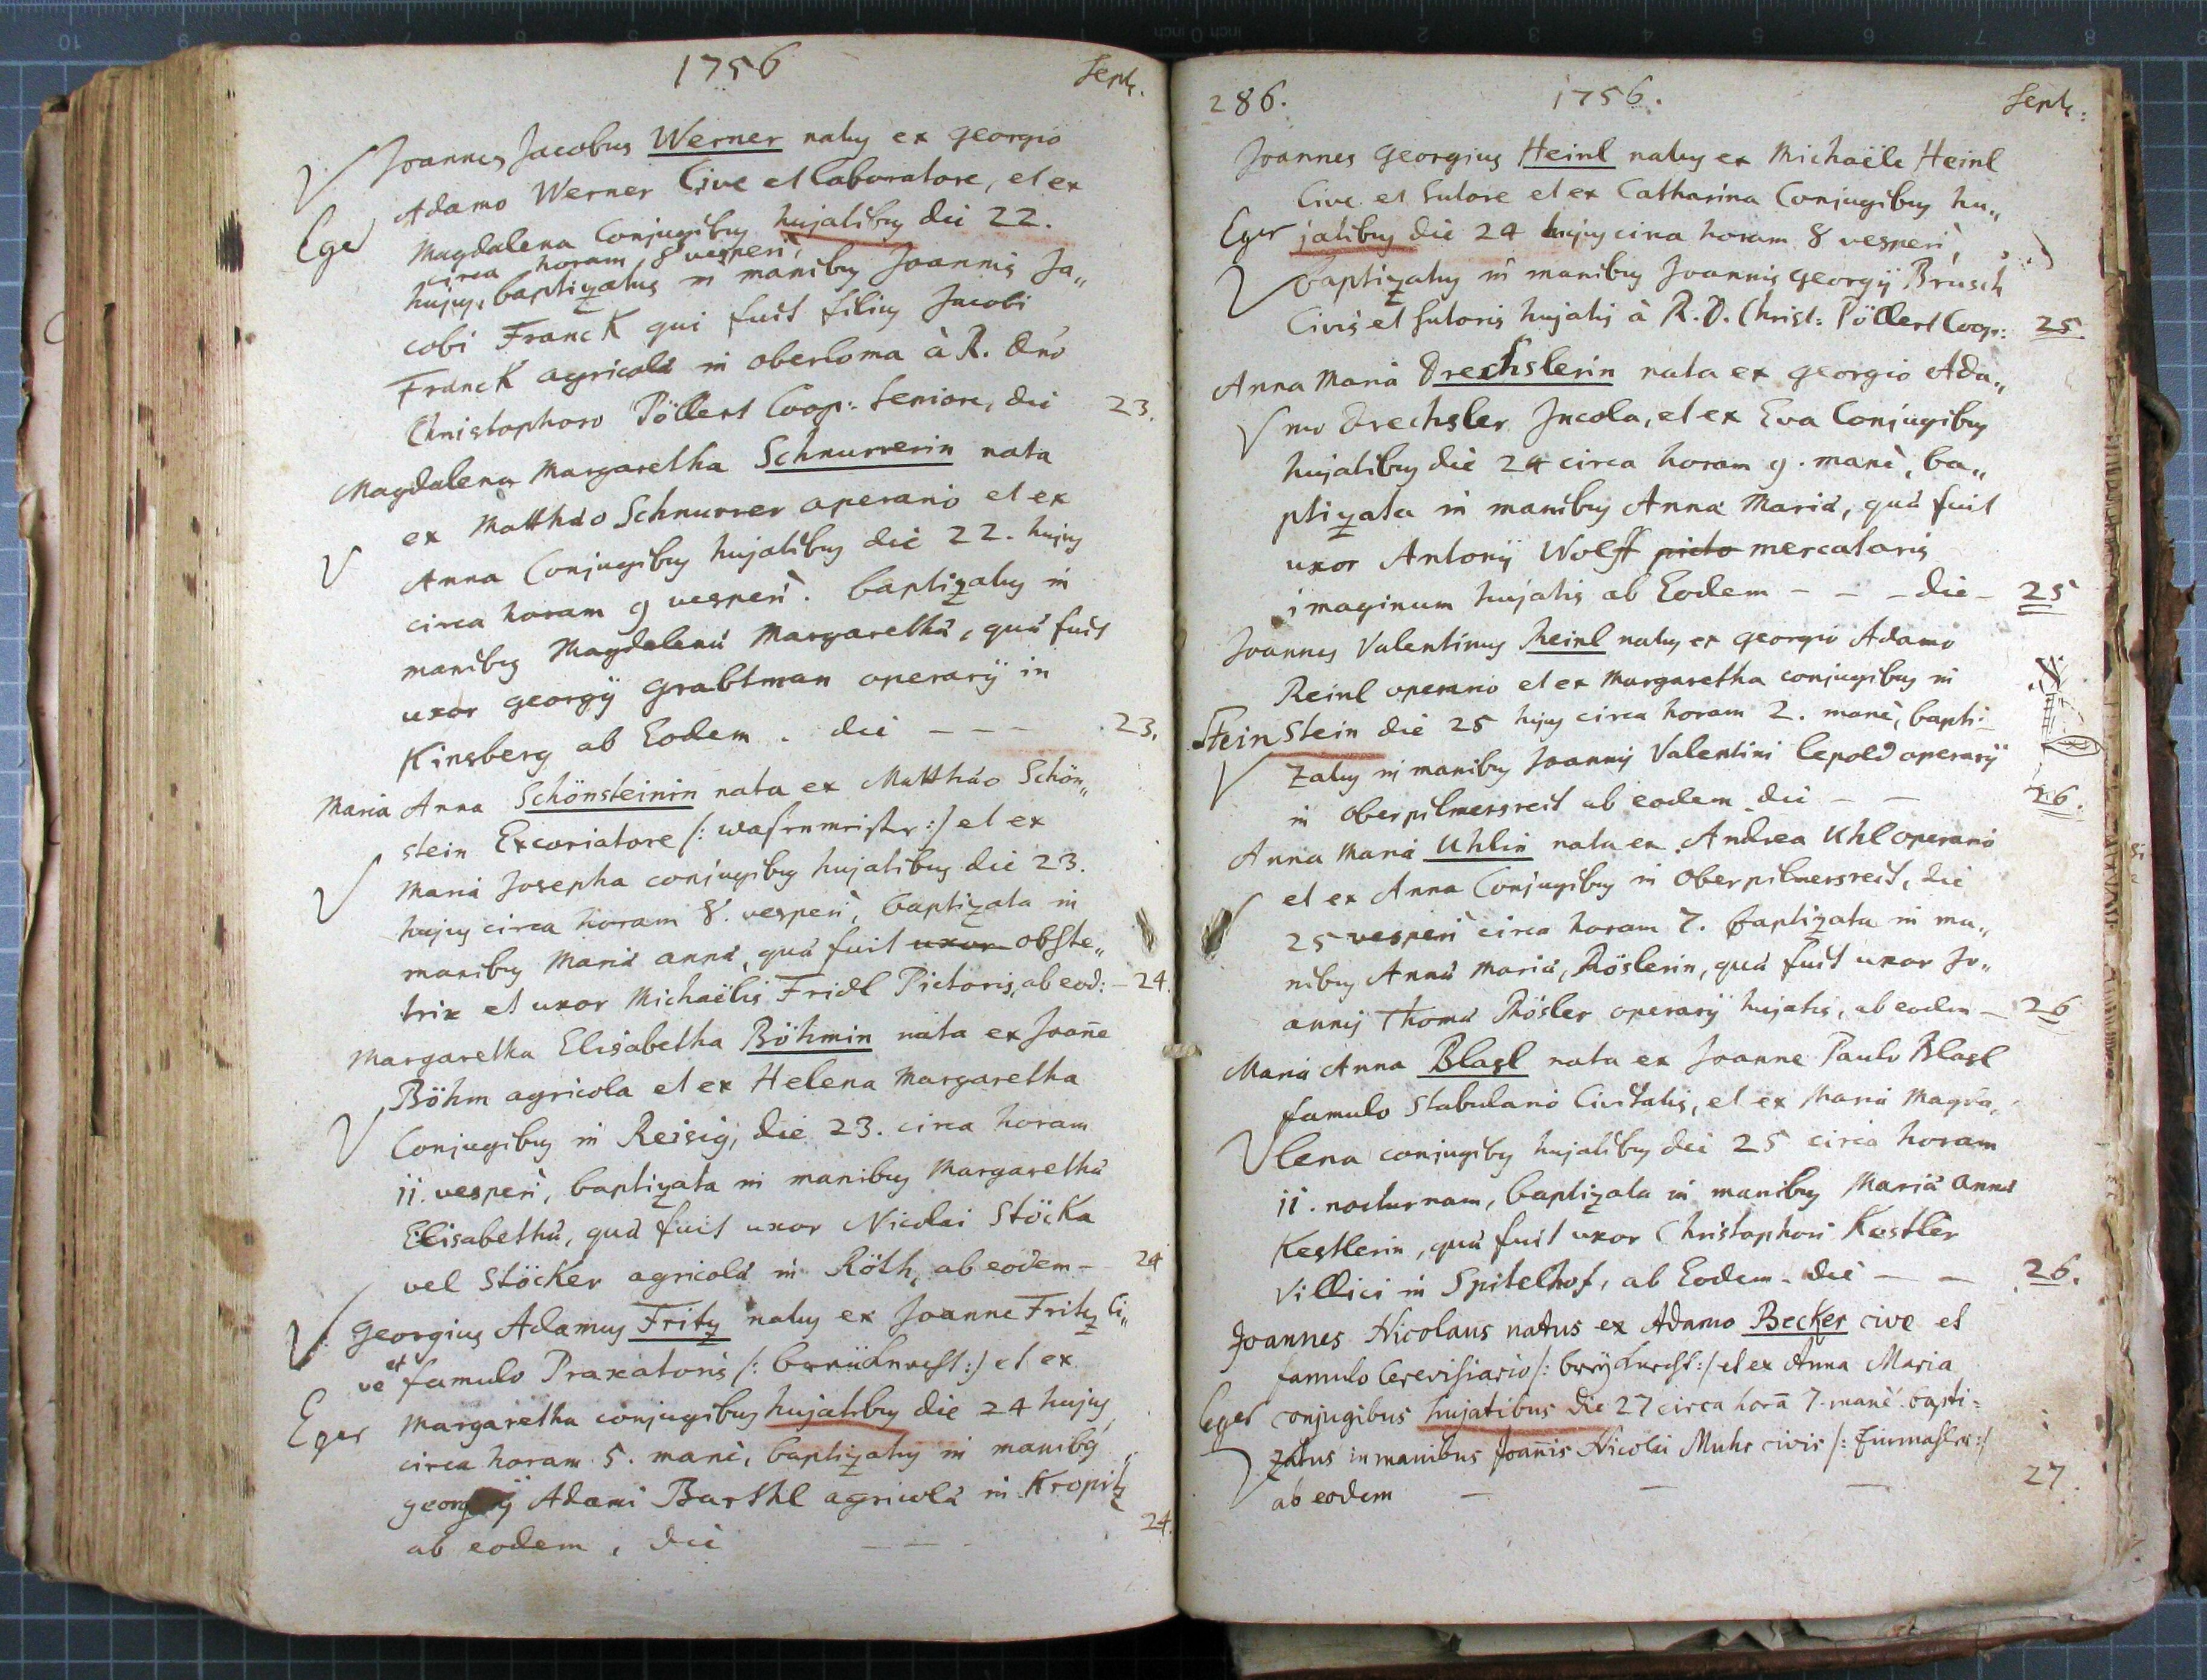 1756
Sept.
Joannes Jacobus Werner natus ex Georgio
Adamo Werner Cive et laboratore, et ex
Eger
Magdalena Conjugibus hujatibus die 22.
circa horam 8 vesperi,
hujus, baptizatus in manibus Joannis Ja„
cobi Franck qui fuit filius Jacobi
Franck agricolá in oberloma à R. dn̄o
Christophoro Pöllert Coop: Seniore, die 23.
Magdalena Margaretha Schnurrerin nata
ex Mattháo Schnurrer operario et ex
Anna Conjugibus hujatibus die 22. hujus
circa horam 9 vesperi. baptizatus in
manibus Magdalená Margarethá, quá fuit
uxor georgÿ Grabtman operarÿ in
Kinsberg ab Eodem . die – – – 23.
Maria Anna Schönsteinin nata ex Mattháo Schön„
stein Excoriatore /: wasenmeister :/ et ex
Maria Josepha conjugibus hujatibus die 23.
hujus circa horam 8. vesperi, baptizata in
manibus Mariá anná, quá fuit uxor obste„
trix et uxor Michaëlis Fridl Pictoris, ab eod: – 24.
Margaretha Elisabetha Böhmin nata ex Joan̄e
Böhm agricola et ex Helena Margaretha
Conjugibus in Reisig, die 23. circa horam
ii. vesperi, baptizata in manibus Margarethá
Elisabethá, quá fuit uxor Nicolai Stöcka
vel Stöcker agricolá in Röth, ab eodem – 24
Georgius Adamus Fritz natus ex Joanne Fritz Ci„
ve et famulo Praxatoris /: breüknecht :/ et ex
Eger Margaretha conjugibus hujatibus die 24 hujus
circa horam 5. mane, baptizatus in manibus
georgÿ Adami Barthl agricolá in Kropitz
ab eodem, die – – – 24.
286. 1756. Sept:
Joannes Georgius Heinl natus ex Michaële Heinl
Cive et Sutore et ex Catharina Conjugibus hu„
Eger jatibus die 24 hujus circa horam 8 vesperi,
baptizatus in manibus Joannis georgÿ Brusch
Civis et Sutoris hujatis à R. D. Christ: Pöllert Coop: 25
Anna Maria Drechslerin nata ex georgio Ada„
mo Drechsler Jncola, et ex Eva Conjugibus
hujatibus die 24 circa horam 9. mane, ba„
ptizata in manibus Anná Mariá, quá fuit
uxor Antonÿ Wolff picto mercatoris
imaginum hujatis ab Eodem – – – die – 25
Joannes Valentinus Reinl natus ex georgio Adamo
Reinl operario et ex Margaretha conjugibus in
Stein Stein die 25 hujus circa horam 2. mane, bapti–
zatus in manibus Joannis Valentini lepold operarÿ
in Oberpilmersreit ab eodem die – – 26.
Anna Maria Uhlin nata ex Andrea Uhl operario
et ex Anna Conjugibus in Oberpilmersreit, die
25 vesperi circa horam 7. baptizata in ma„
nibus Anná Mariá, Röslerin, quá fuit uxor Jo„
annis Thomá Rösler operarÿ hujatis, ab eodem – 26
Maria Anna Blasl nata ex Joanne Paulo Blasl
famulo Stabulario Civitatis, et ex Maria Magda„
lena conjugibus hujatibus die 25 circa horam
ii. nocturnam, baptizata in manibus Mariá Anná
Kestlerin, quá fuit uxor Christophori Kestler
Villici in Spitelhof, ab Eodem – die – – 26.
Joannes Nicolaus natus ex Adamo Becker cive et
famulo Cerevisiario /: breÿknecht :/ et ex Anna Maria
Eger conjugibus hujatibus die 27 circa horā 7. mane bapti=
zatus in manibus Joan̄is Nicolai Muhr civis
ab eodem – – – 27.